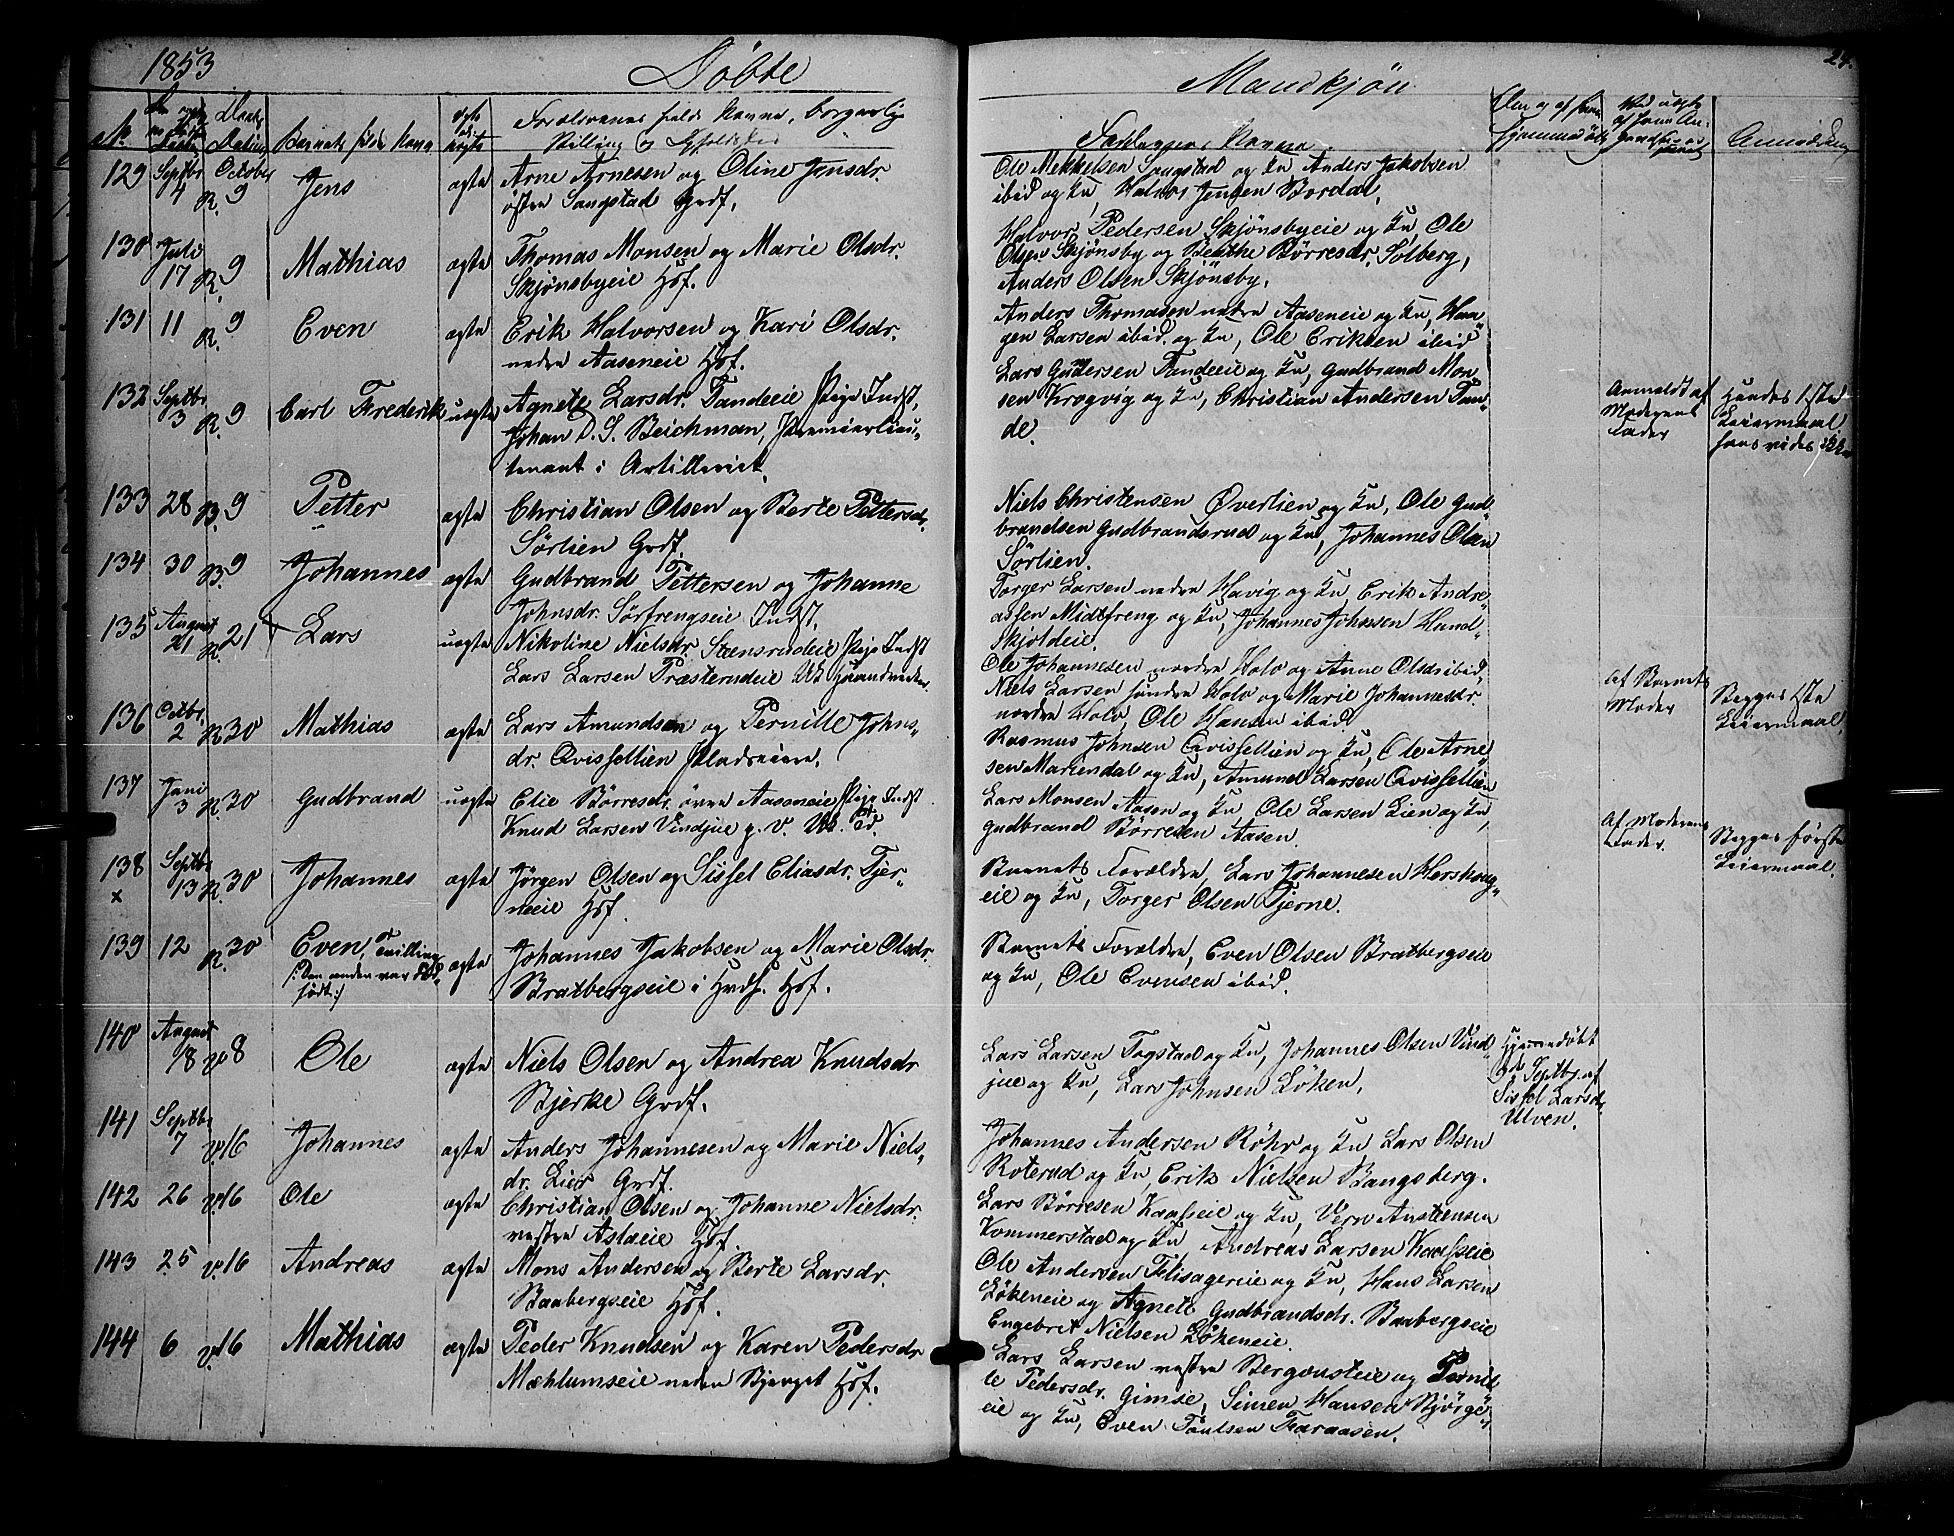 1853
Döbte
Mandkjön
24.
No
Barnets fulde Navn
Forældrenes fulde Navne, borgerlige
Stilling og Opholdssted
Faddernes Navne
129 Septbr. 4 October R. 9 Jens ægte Arne Arnesen og Oline Jensdr.
östre Sangstad Grdf.
Ole Mikkelsen Sangstad og Ku, Anders Jakobsen
ibid og Ku, Halvor Jensen Bordal.
130 Juli 17 R. 9 Mathias ægte Thomas Monsen og Marie Olsdr.
Skjönsbyeie Hsf.
Halvor Pedersen Skjönsbyeie og Ku, Ole
Olsen Skjönsby og Berthe Börresdr. Solberg,
Anders Olsen Skjönsby.
131 11 R. 9 Even ægte Erik Halvorsen og Kari Olsdr.
nedre Aaseneie Hsf.
Anders Thomasen nedre Aaseneie og Ku, Haa-
gen Larsen ibid. og Ku, Ole Eriksen ibid
132 Septbr. 3 R. 9 Carl Frederik uægte Agnete Larsdr. Tandeeie Pige Indst,
Johan D. S. Beichman, Premierlieu-
tenant i Artilleriet.
Lars Gundersen Tandeeie og Ku, Gudbrand Mon-
sen Krogvig og Ku, Christian Andersen Tan-
de.
Anmeldt af
Moderens
Fader
Hendes 1ste
Leiermaal
hans vides ikke
133 28 B. 9 Petter ægte Christian Olsen og Berte Pettersdr.
Sörlien Grdf.
Niels Christensen Øverlien og Ku, Ole Gud-
brandsen Gudbrandsrud og Ku, Johannes Olsen
Sörlien.
134 30 B. 9 Johannes ægte Gudbrand Pettersen og Johanne
Johnsdr. Sörfrengseie Indst.
Torger Larsen nedre Havig og Ku, Erik Andre-
assen Midtfreng og Ku, Johannes Johnsen Hund-
skjoldeie.
135 August 21 R. 21 Lars uægte Nikoline Nielsdr. Stensrudeie Pige Indst
Lars Larsen Præsterudeie Uk Haandverker.
Ole Johannesen nordre Holo og Anne Olsdr ibid,
Niels Larsen söndre Holo og Marie Johannesdr.
nordre Holo, Ole Hansen ibid.
Af Barnets
Moder
Begges 1ste
Leiermaal.
136 Octbr. 2 R. 30 Mathias ægte Lars Amundsen og Pernille Johns-
dr. Qvisellien Pladseiere.
Rasmus Johnsen Qvisellien og Ku, Ole Arne-
sen Mariendal og Ku, Amund Larsen Qvisellien
137 Juni 3 R. 30 Gudbrand uægte Elie Börresdr. övre Aaseneie Pige Indst
Knud Larsen Vindjue g. v. Uk.
Lars Monsen Aasen og Ku, Ole Larsen Lien og Ku,
Gudbrand Börresen Aasen.
Af Moderens
Fader.
Begges förste
Leiermaal.
138 x Septbr. 13 R. 30 Johannes ægte Jörgen Olsen og Sissel Eliasdr. Tjer-
neeie Hsf.
Barnets Forældre, Lars Johannesen Horshoug-
eie og Ku, Torger Olsen Tjerne.
139 12 R. 30 Even, Tvilling
/:Den anden var död-
född:/
ægte Johannes Jakobsen og Marie Olsdr.
Bratbergseie i Hsf.
Barnets Forældre, Even Olsen Bratbergseie
og Ku, Ole Evensen ibid.
140 August 18 v. 8 Ole ægte Niels Olsen og Andrea Knudsdr
Bjerke Grdf.
Lars Larsen Togstad og Ku, Johannes Olsen Vind-
jue og Ku, Lars Johnsen Löken.
Hjemmedöbt
Septbr. af
Sissel Larsdr
Ulven.
141 Septbr. 7 v. 16 Johannes ægte Anders Johannesen og Marie Niels-
dr. Lier Grdf.
Johannes Andersen Röhr og Ku Lars Olsen
Roterud og Ku, Erik Nielsen Bangsberg.
142 26 v. 16 Ole ægte Christian Olsen og Johanne Nielsdr.
vestre Astaeie Hsf.
Lars Börresen Kaasseie og Ku, Austensen
Kommerstad og Ku Andreas Larsen Kaasseie
143 25 v. 16 Andreas ægte Mons Andersen og Berte Larsdr.
Baabergseie Hsf.
Ole Andersen Flisagereie og Ku, Hans Larsen
Lökeneie og Agnete Gudbrandsdr. Baabergseie
Engebret Nielsen Lökeneie.
144 6 v. 16 Mathias ægte Peder Knudsen og Karen Pedersdr
Mæhlumseie neden Bjerget Hsf.
Lars Larsen vestre Bergouseie og Pernil-
le Pedersdr. Gimse, Simen Hansen Bjørge-
eie og Ku, Even Poulsen Faraasen.